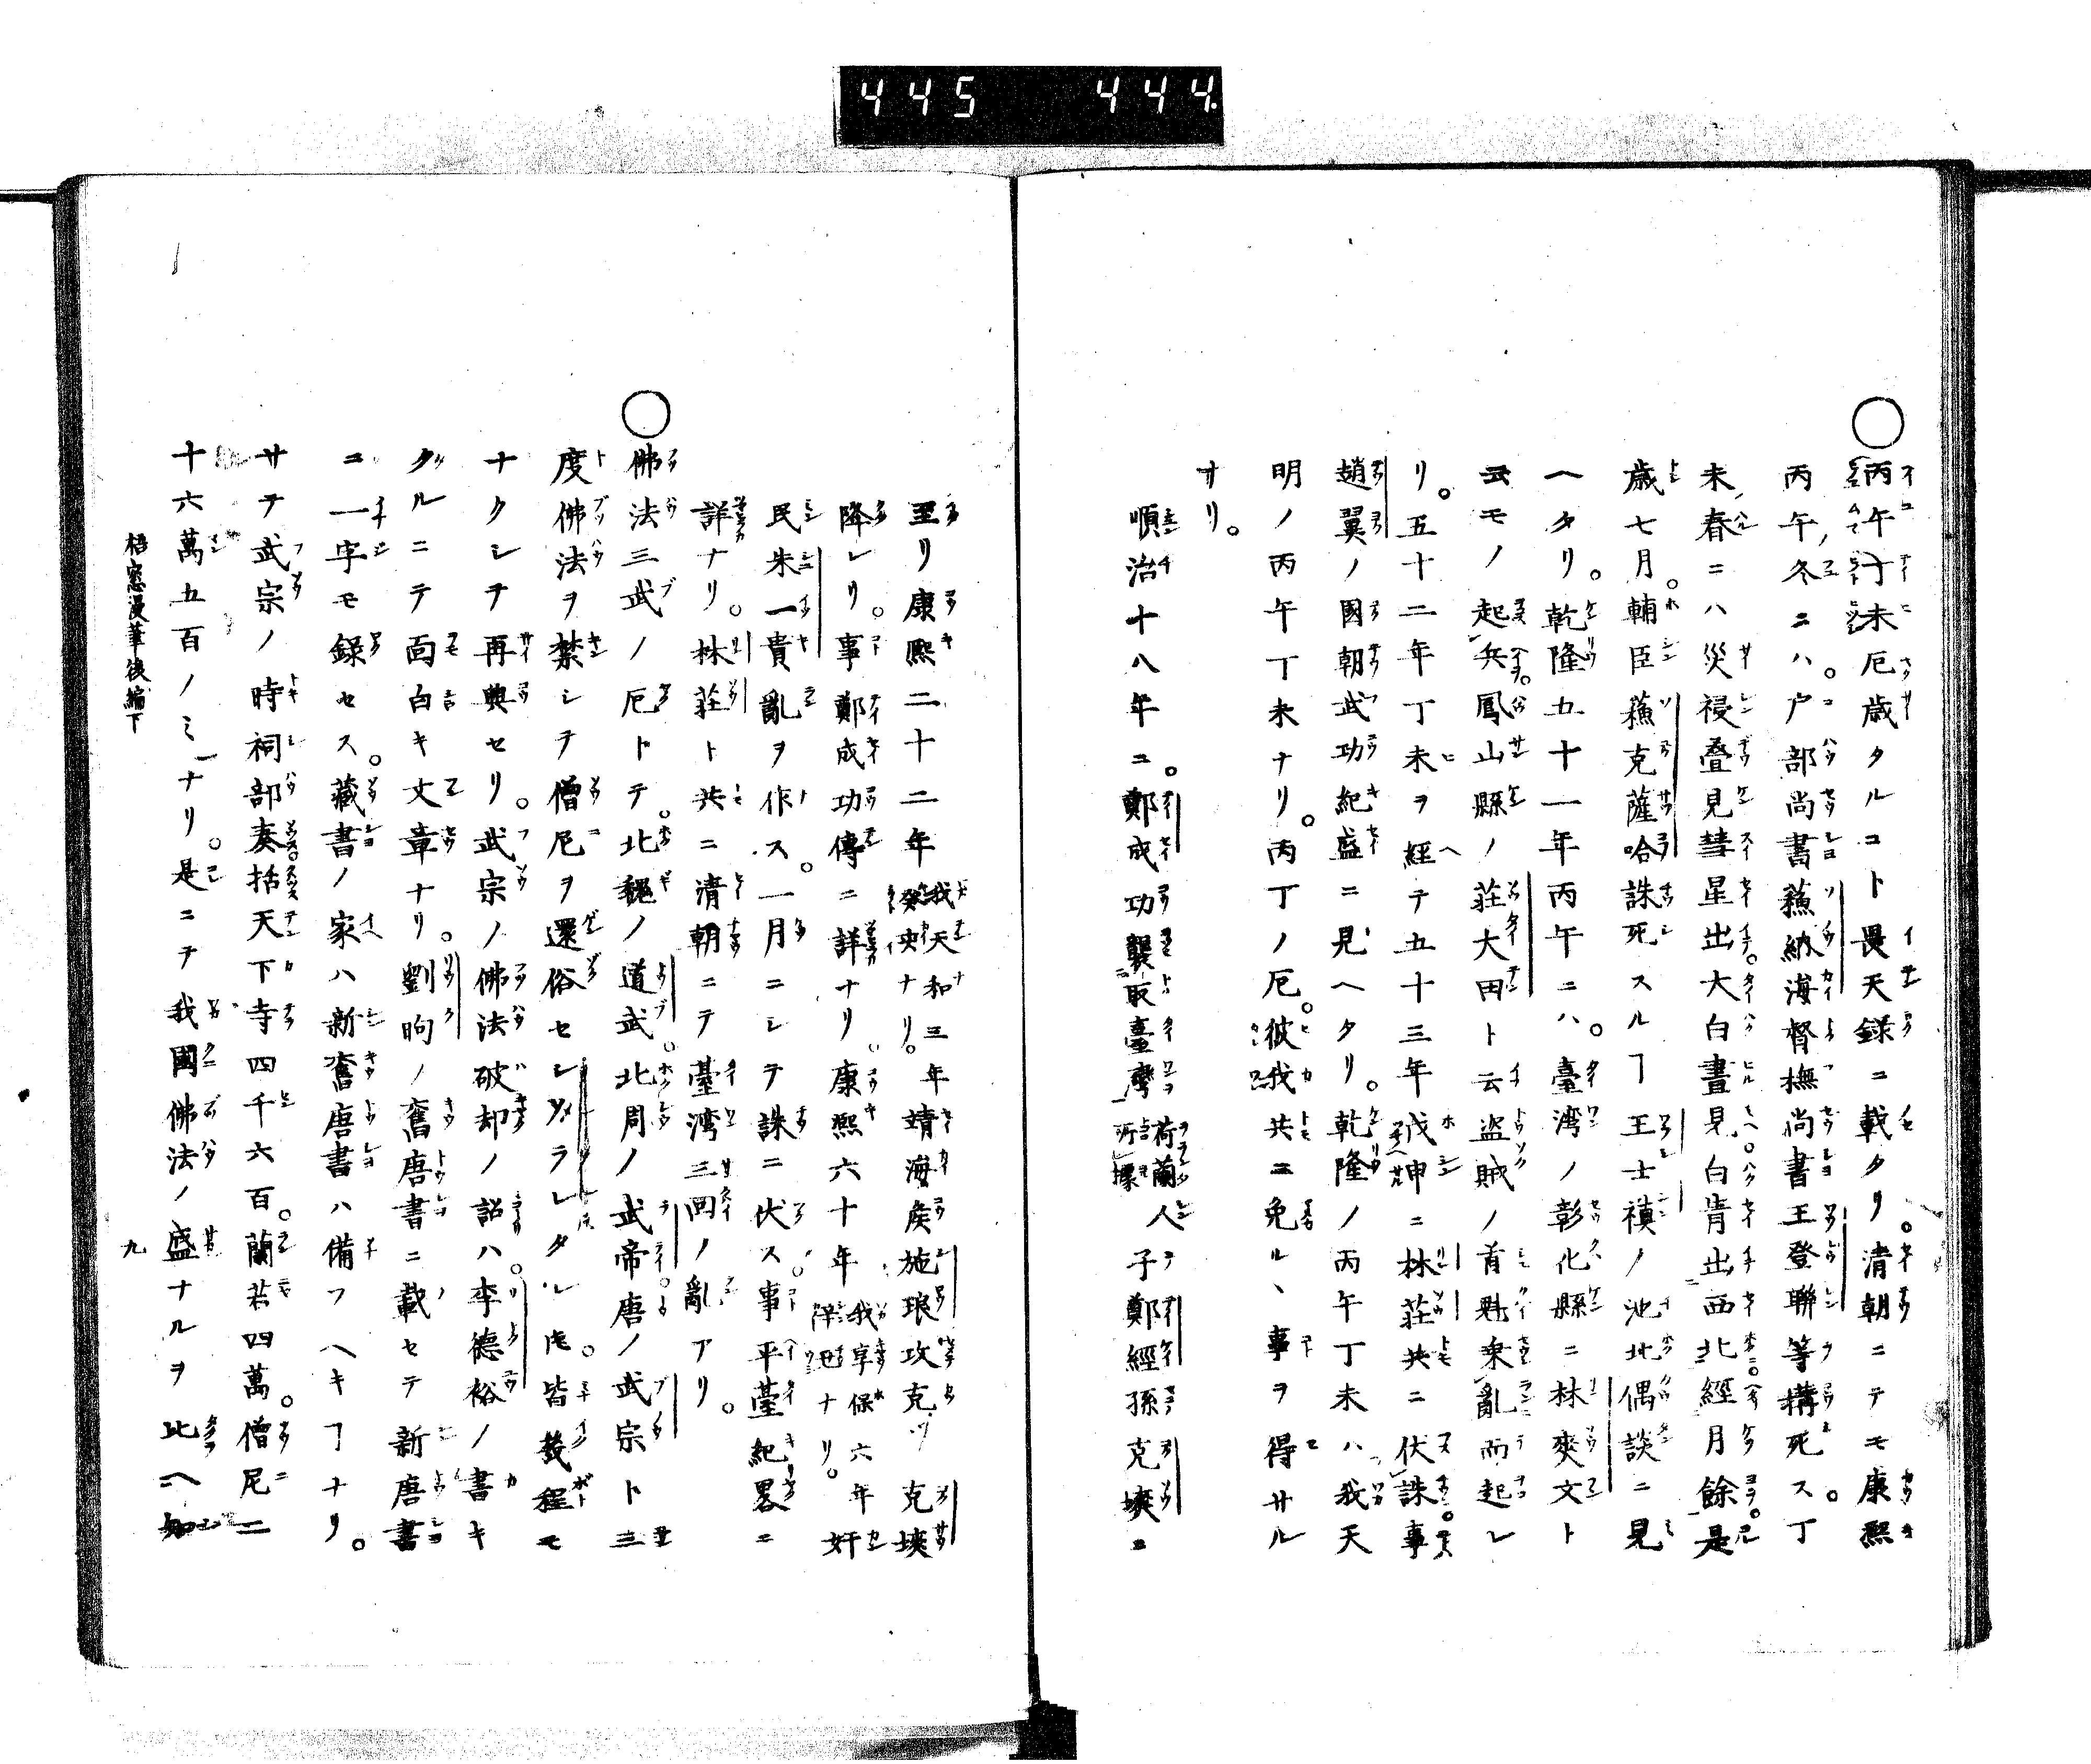 445 444
〇丙午丁未厄歳タルコト畏天録ニ載タリ。清朝ニテモ康熙
丙午ノ冬ニハ。户部尚書蘓納海督撫尚書王登聯等構死ス。丁
未ノ春ニハ災祲疊見彗星出。大白晝見。白眚出西北。經月餘。是
歳七月。輔臣蘓克薩哈誅死スルヿ王士禛ノ池北偶談ニ見
ヘタリ。乾隆五十一年丙午ニハ。臺湾ノ彰化縣ニ林爽文ト
云モノ起兵。鳳山縣ノ荘大田ト云盗賊ノ首魁衆亂而起レ
リ。五十二年丁未ヲ經テ五十三年戊申ニ林荘共ニ伏誅。事
趙翼ノ國朝武功紀盛ニ見ヘタリ。乾隆ノ丙午丁未ハ我天
明ノ丙午丁未ナリ。丙丁ノ厄。彼我共ニ免ルヽ事ヲ得サル
ナリ。
順治十八年ニ。鄭成功襲取臺灣 荷蘭人所據 子鄭經孫克塽ニ
至リ康熙二十二年 我天和三年癸亥ナリ。 靖海侯施琅攻克ツ克塽
降レリ。事鄭成功傳ニ詳ナリ。康熙六十年 我享保六年辛丑ナリ。 奸
民朱一貴亂ヲ作ス。一月ニシテ誅ニ伏ス。事平臺紀畧ニ
詳ナリ。林荘ト共ニ清朝ニテ臺湾三回ノ亂アリ。
〇佛法三武ノ厄トテ。北魏ノ道武。北周ノ武帝。唐ノ武宗ト三
度佛法ヲ禁シテ僧尼ヲ還俗セシメラレタルモ。皆幾程モ
ナクシテ再興セリ。武宗ノ佛法破却ノ詔ハ。李德裕ノ書キ
タルニテ面白キ文章ナリ。劉昫ノ舊唐書ニ載セテ新唐書
ニ一字モ録セス。藏書ノ家ハ新舊唐書ハ備フヘキヿナリ。
サテ武宗ノ時祠部奏括天下寺四千六百。蘭若四萬。僧尼二
十六萬五百ノミナリ。是ニテ我國佛法ノ盛ナルヲ比ヘ知
梧窓漫筆後編下 九